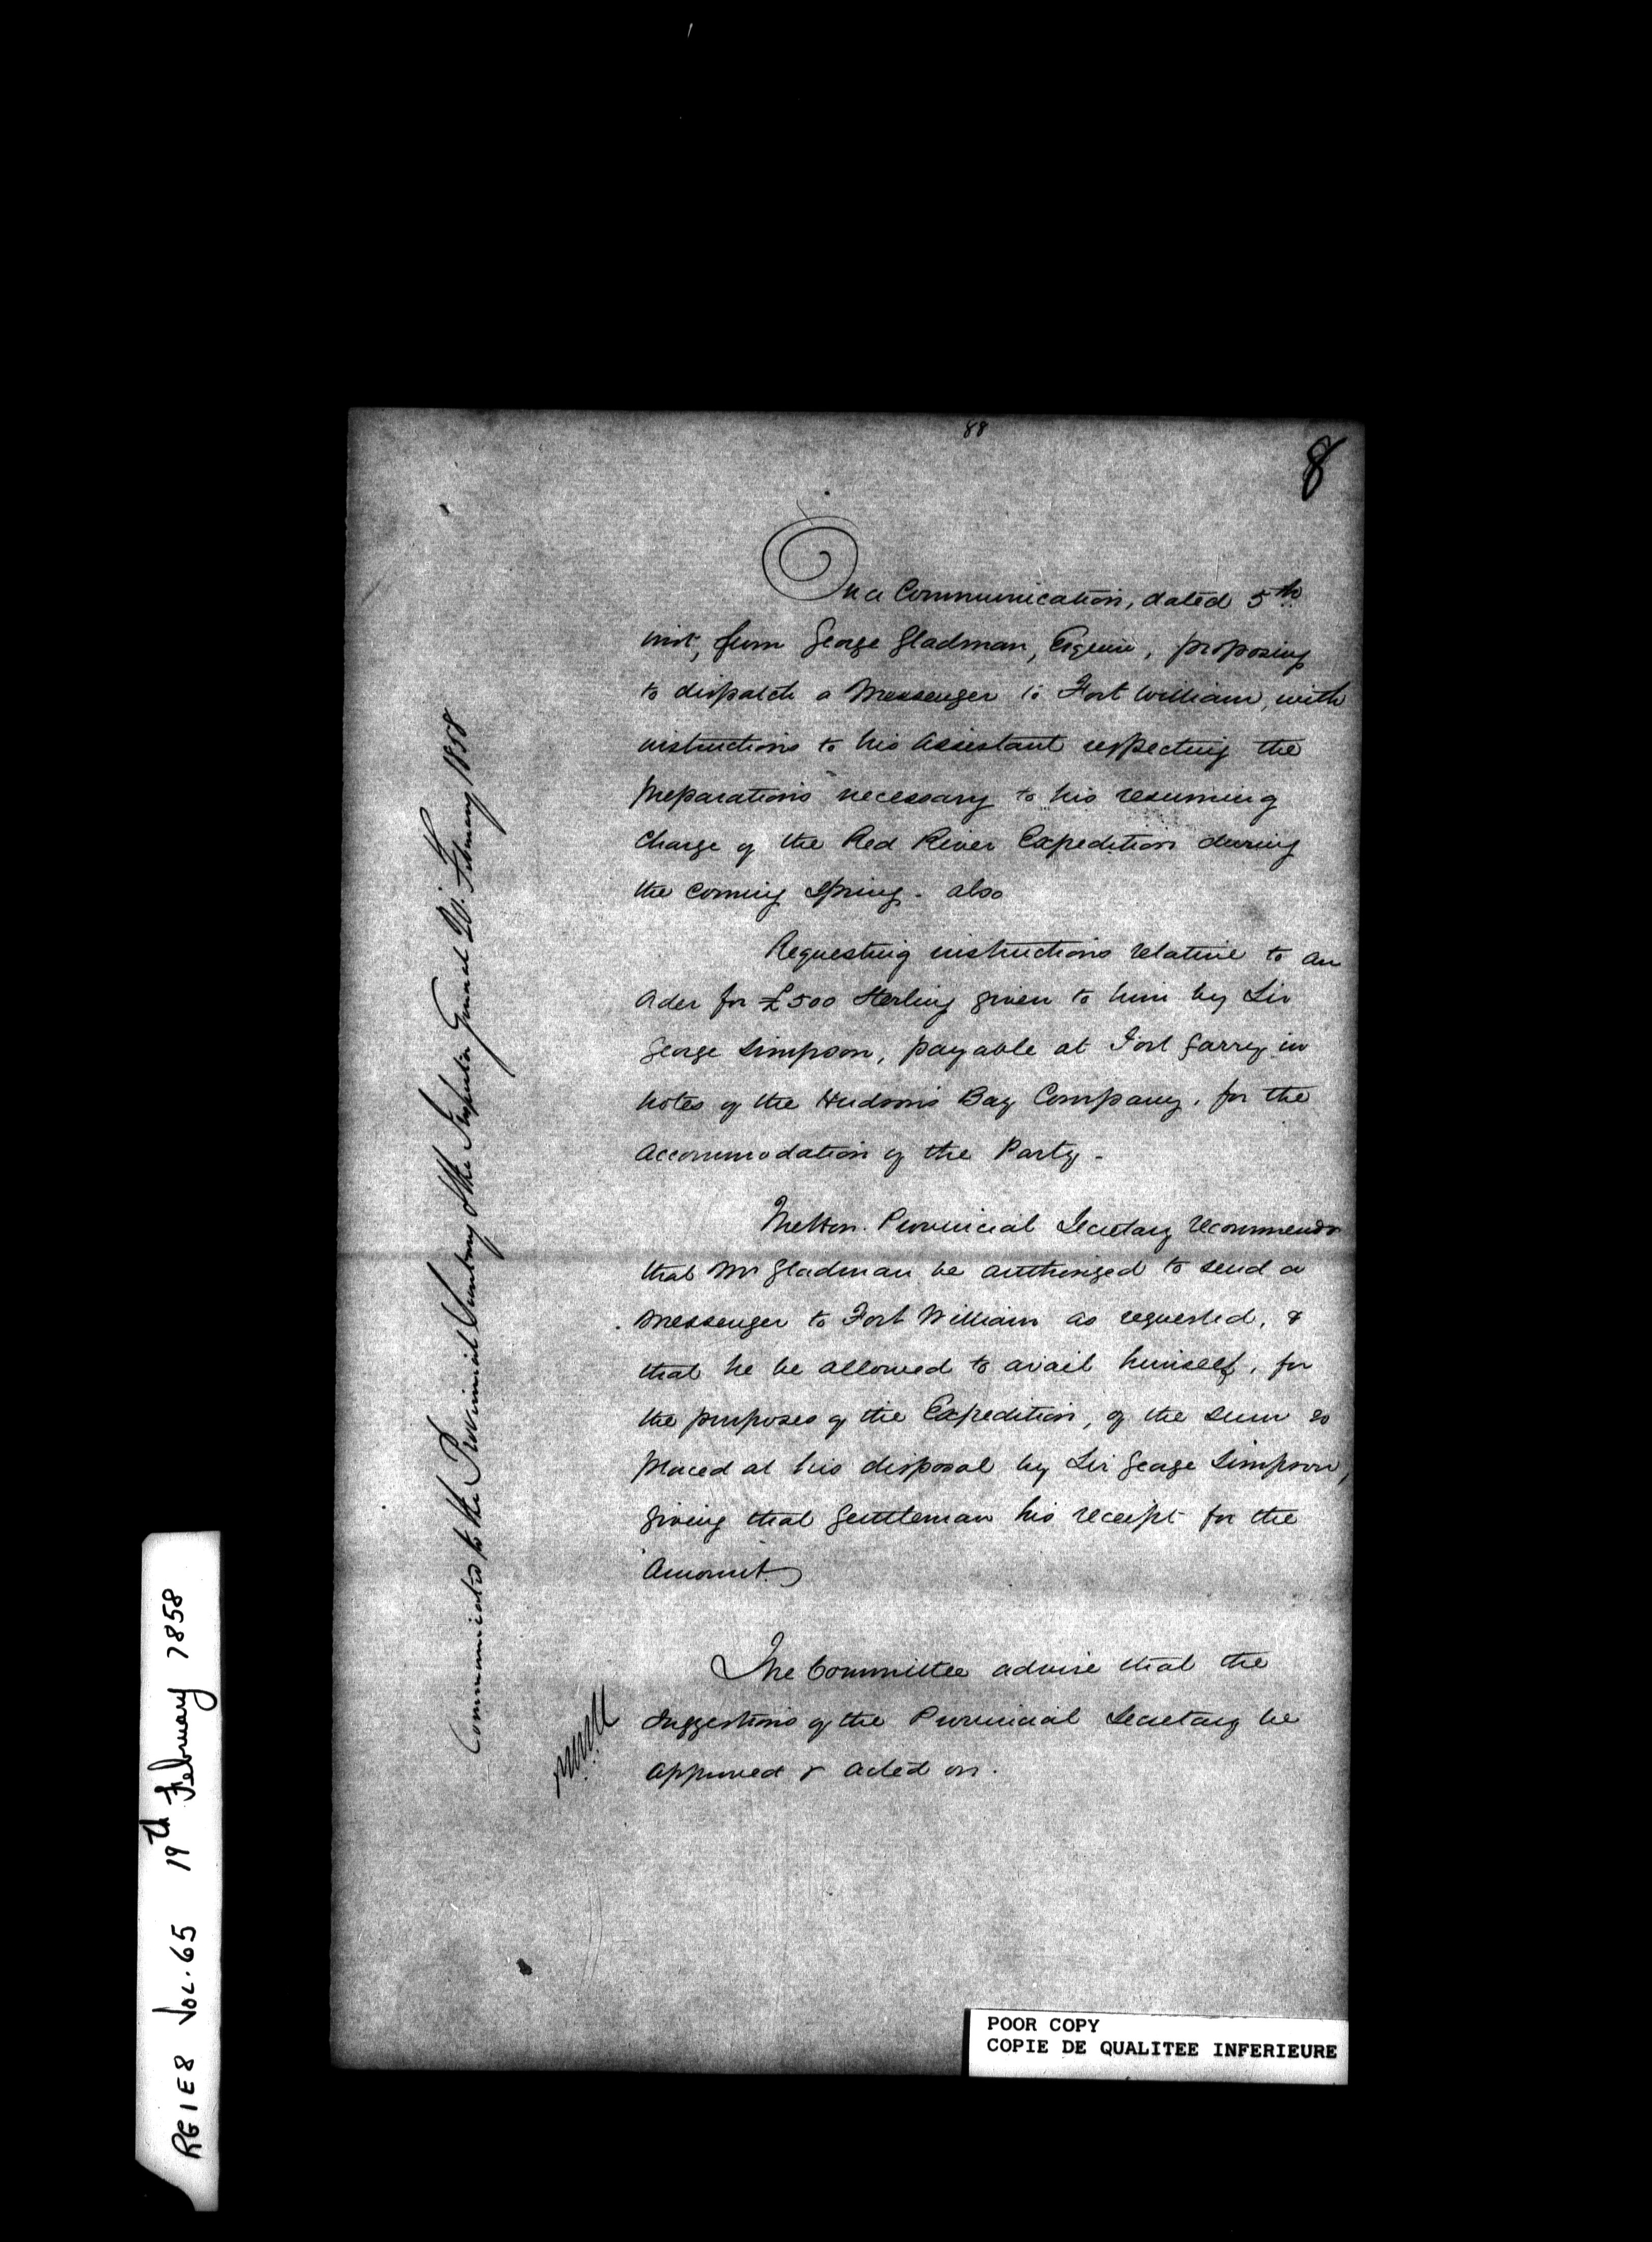 88
8
On a Communication, dated 5th
inst, from George Gladman, Esquire, proposing
to dispatch a Messenger to Fort William, with
instructions to his Assistant respecting the
preparations necessary to his resuming
Charge of the Red River Expedition during
the coming Spring. also
Requesting instructions relative to an
Order for £500 Sterling given to him by Sir
George Simpson, payable at Fort Garry in
Notes of the Hudson's Bay Company, for the
Accommodation of the Party -
The Hon. Provincial Secretary recommends
that Mr Gladman be authorized to send a
Messenger to Fort William as requested, &
that he be allowed to avail himself, for
the purposes of the Expedition, of the sum so
placed at his disposal by Sir George Simpson,
giving that Gentleman his receipt for the
Amount.
The Committee advise that the
Suggestions of the Provincial Secretary be
approved & acted on.
Communicated to the Provincial Secretary & the Inspector General 20th February 1858
RG 1 E8 VOL. 65 19th February 1858
POOR COPY
COPIE DE QUALITEE INFERIEURE